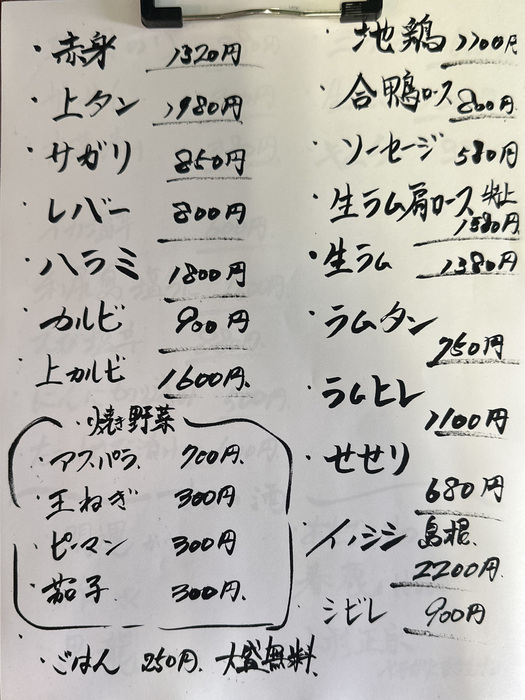 ・赤身 1320円
・上タン 1980円
・サガリ 850円
・レバー 800円
・ハラミ 1800円
カルビ 900円
上カルビ 1600円
・焼き野菜
・アスパラ 700円
・玉ねぎ 300円
・ピーマン 300円
・茄子 300円
・ごはん 250円 大盛無料
・地鶏 1100円
・合鴨ロース 800円
・ソーセージ 580円
・生ラム肩ロース
1580円
・生ラム 1380円
・ラムタン
750円
・ラムヒレ
1100円
・せせり
680円
・イノシシ 島根
2200円
・シビレ 900円